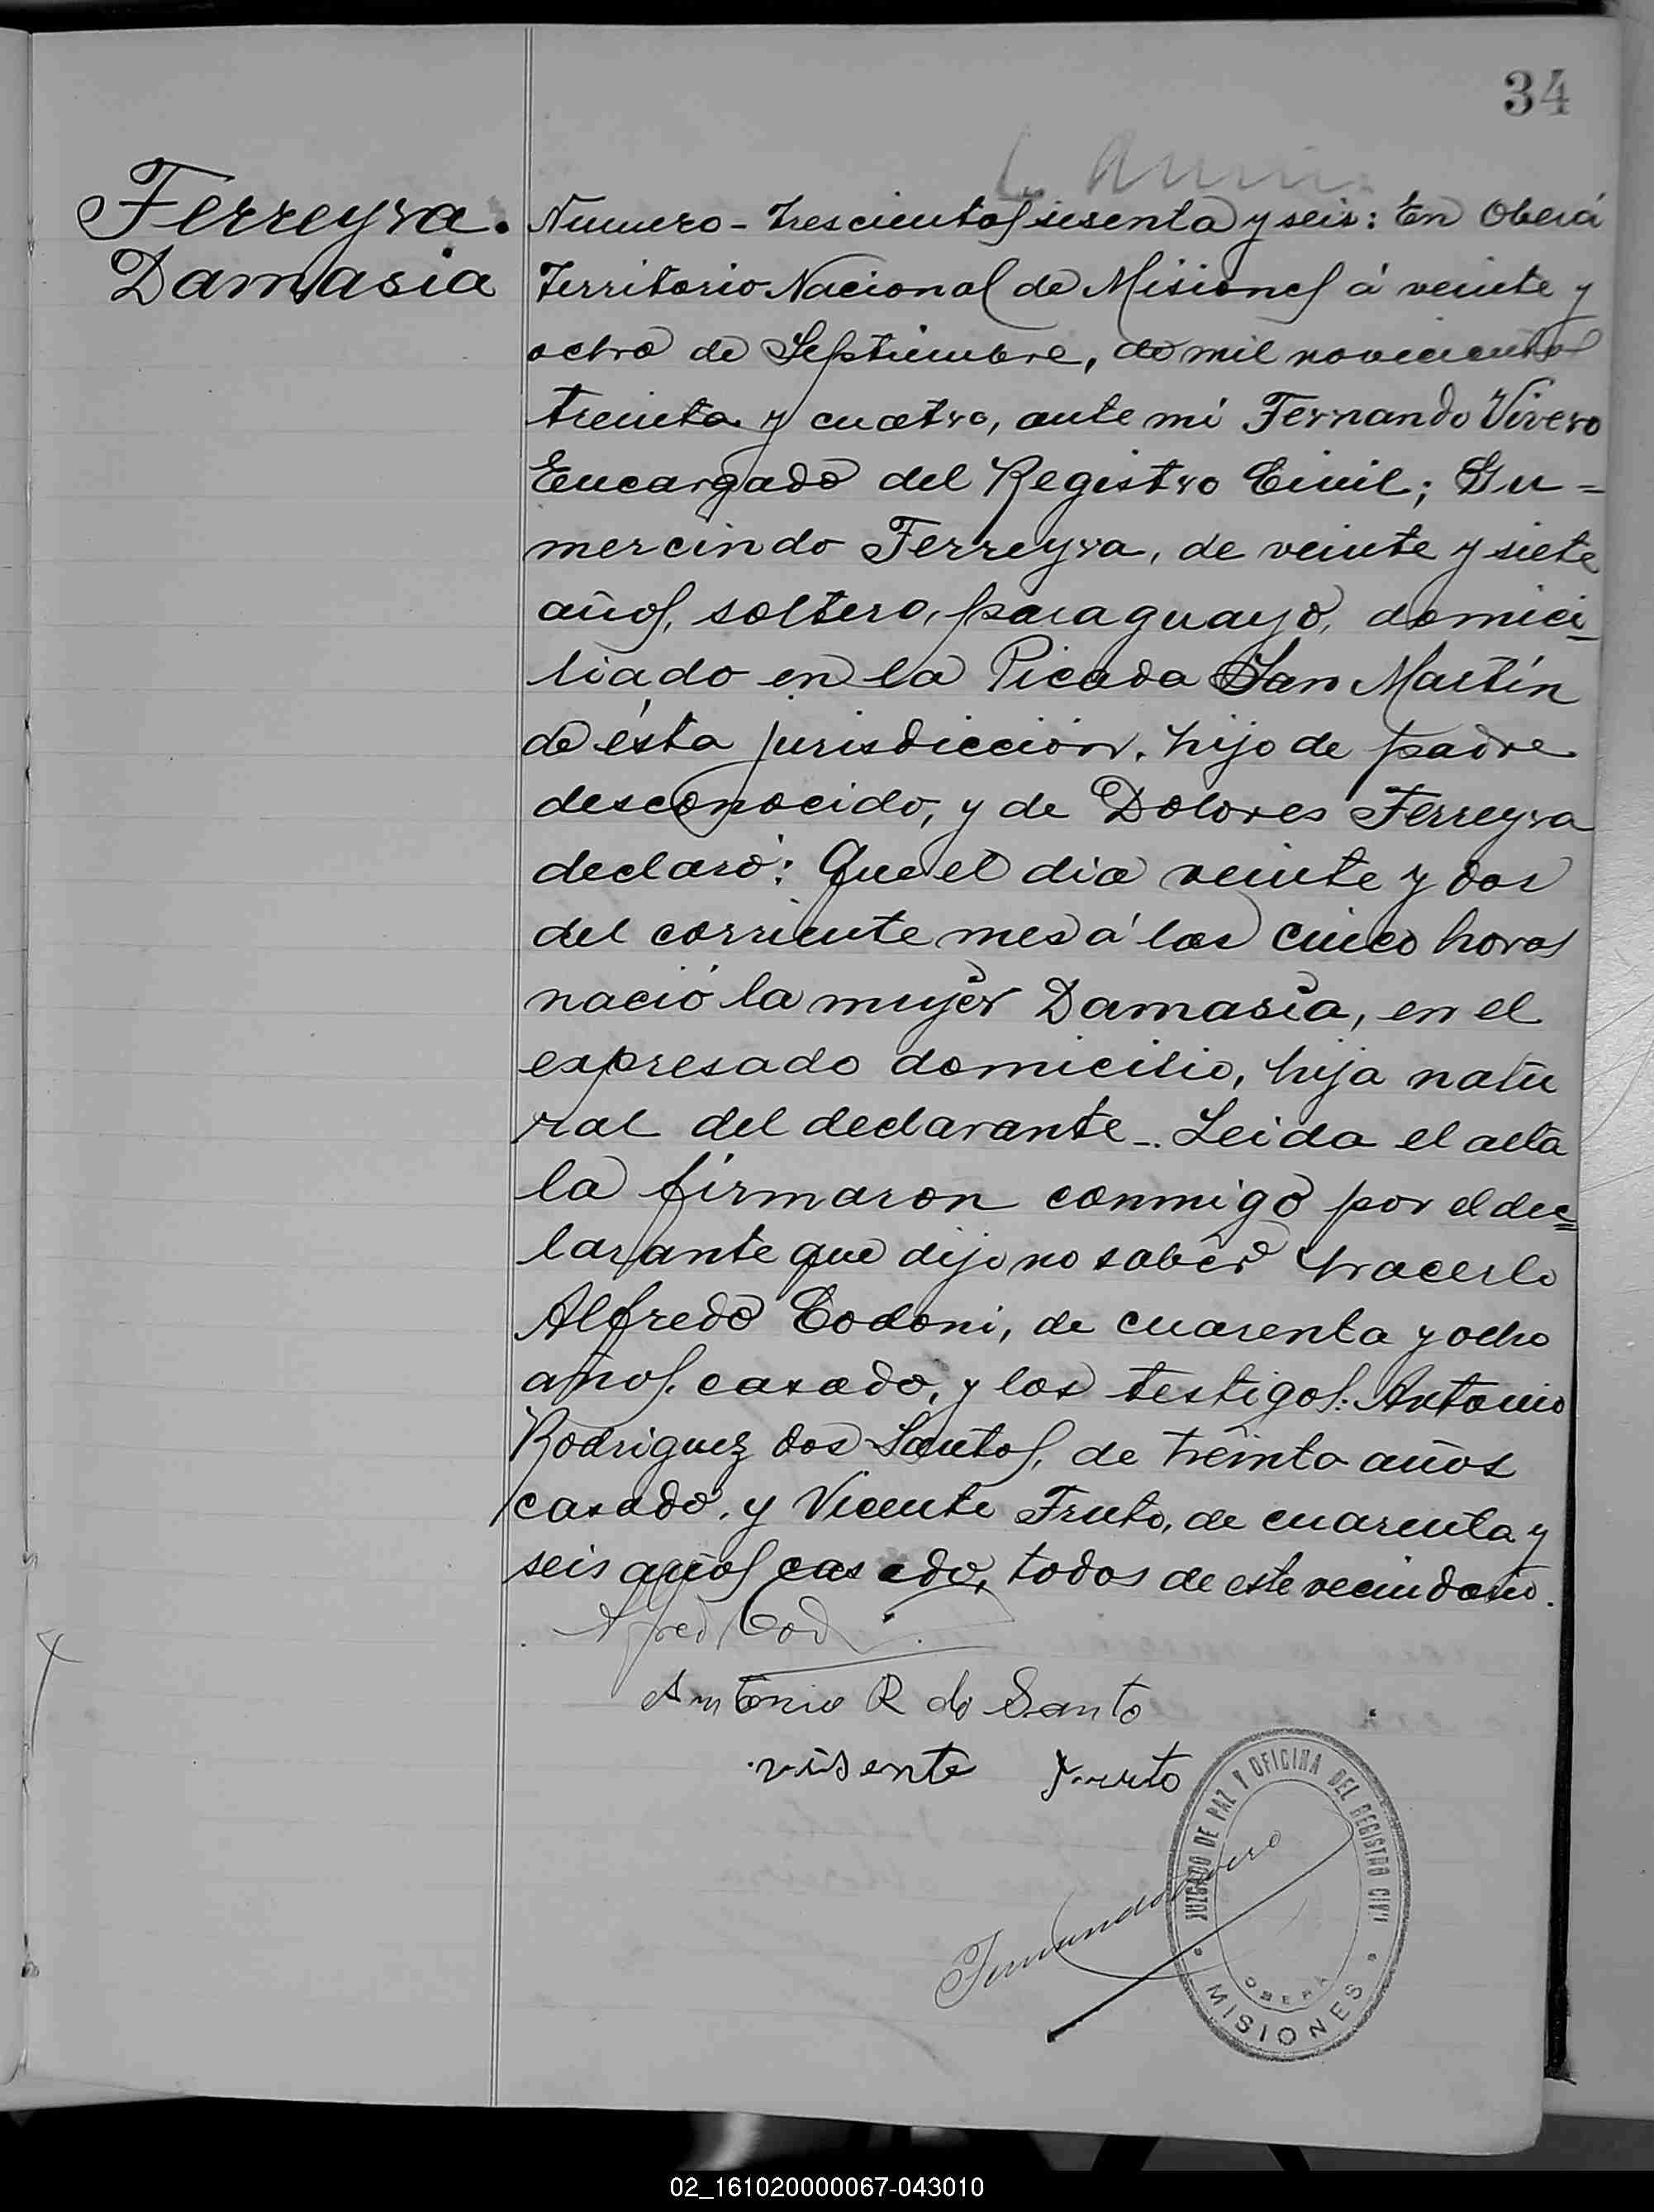 34
Ferreyra.
Damasia
Numero - trescientos sesenta y seis: En Oberá
Territorio Nacional de Misiones á veinte y
ochro de Septiembre, de mil novecientos
treinta y cuatro, ante mi Fernando Vivero
Encargado del Registro Civil; Gu=
mercindo Ferreyra, de veinte y siete
años, soltero, paraguayo, domici-
liado en la Picada San Martín
de ésta jurisdicción, hijo de padre
desconocido, y de Dolores Ferreyra
declaró: Que el dia veinte y dos
del corriente mes á las cinco horas
nació la mujer Damasia, en el
expresado domicilio, hija natu
ral del declarante_. Leida el acta
la firmaron conmigo por el dec=
larante que dijo no saber hacerlo
Alfredo Codoni, de cuarenta y ocho
años, casado, y los testigos: Antonio
Rodriguez dos Santos, de treinta años
casado, y Vicente Fruto, de cuarenta y
seis años casado, todos de este vecindario.
Alfred Cod
Antonio R do Santo
visente Fruto
Fernando Vivero
JUZGADO DE PAZ Y OFICINA DEL REGISTRO CIVI
OBERA
MISIONES
02_161020000067-043010